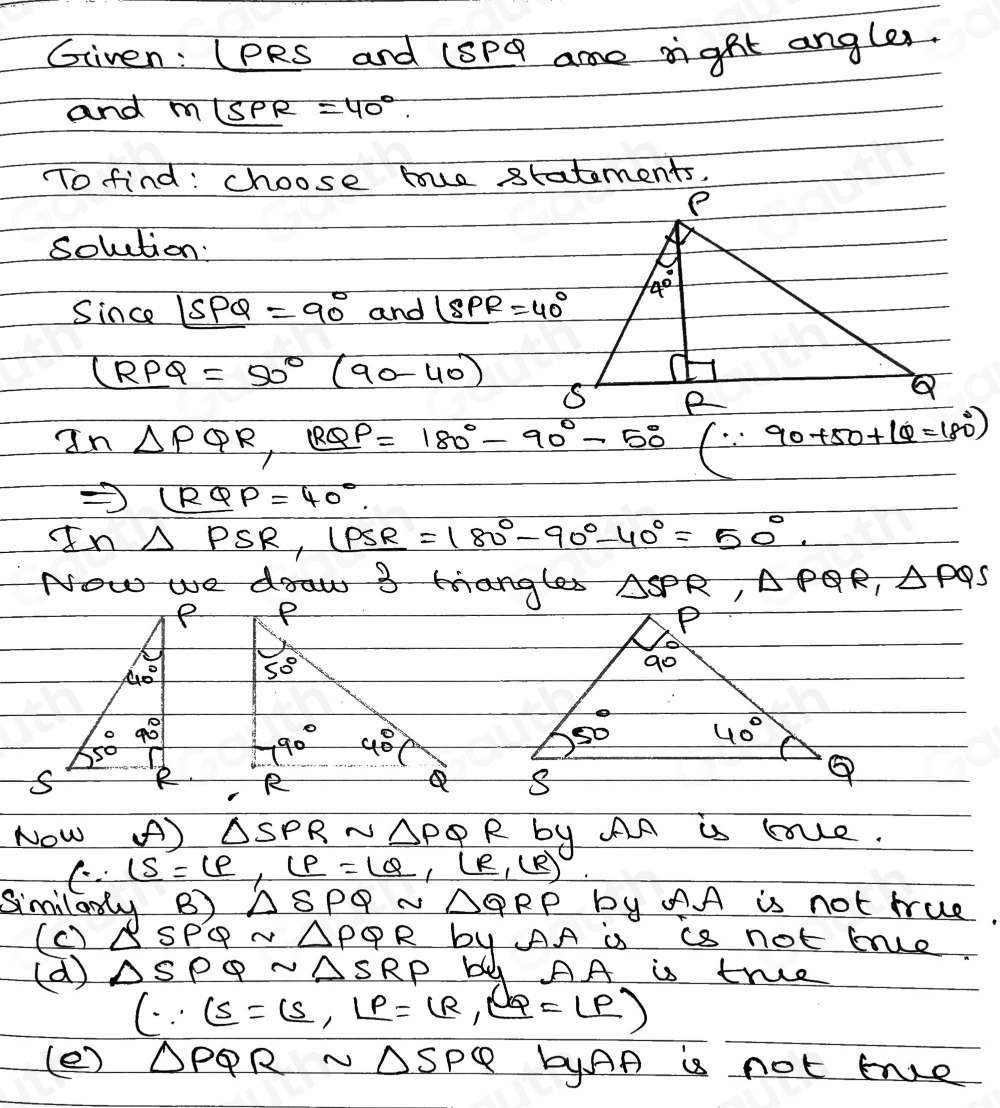 Given: ∠PRS and ∠SPQ are right angles.
and m∠SPR = 40°.
To find: choose true statements.
Solution:
Since ∠SPQ = 90° and ∠SPR = 40°
∠RPQ = 50° (90-40)
P
40°
S
R
Q
In △PQR, ∠RQP = 180° - 90° - 50° (∵ 90+50+∠Q = 180°)
⇒ ∠RQP = 40°.
In △ PSR, ∠PSR = 180° - 90° - 40° = 50°.
Now we draw 3 triangles △SPR, △PQR, △PQS
P
40°
50°
90°
S
R
P
50°
90°
40°
R
Q
P
90°
50°
40°
S
Q
Now A) △SPR ~ △PQR by AA is true.
(∵ ∠S = ∠P, ∠P = ∠Q, ∠R, ∠R).
Similarly B) △SPQ ~ △QRP by AA is not true.
(c) △SPQ ~ △PQR by AA is is not true.
(d) △SPQ ~ △SRP by AA is true
(∵ ∠S = ∠S, ∠P = ∠R, ∠Q = ∠P)
(e) △PQR ~ △SPQ by AA is not true
Gauth